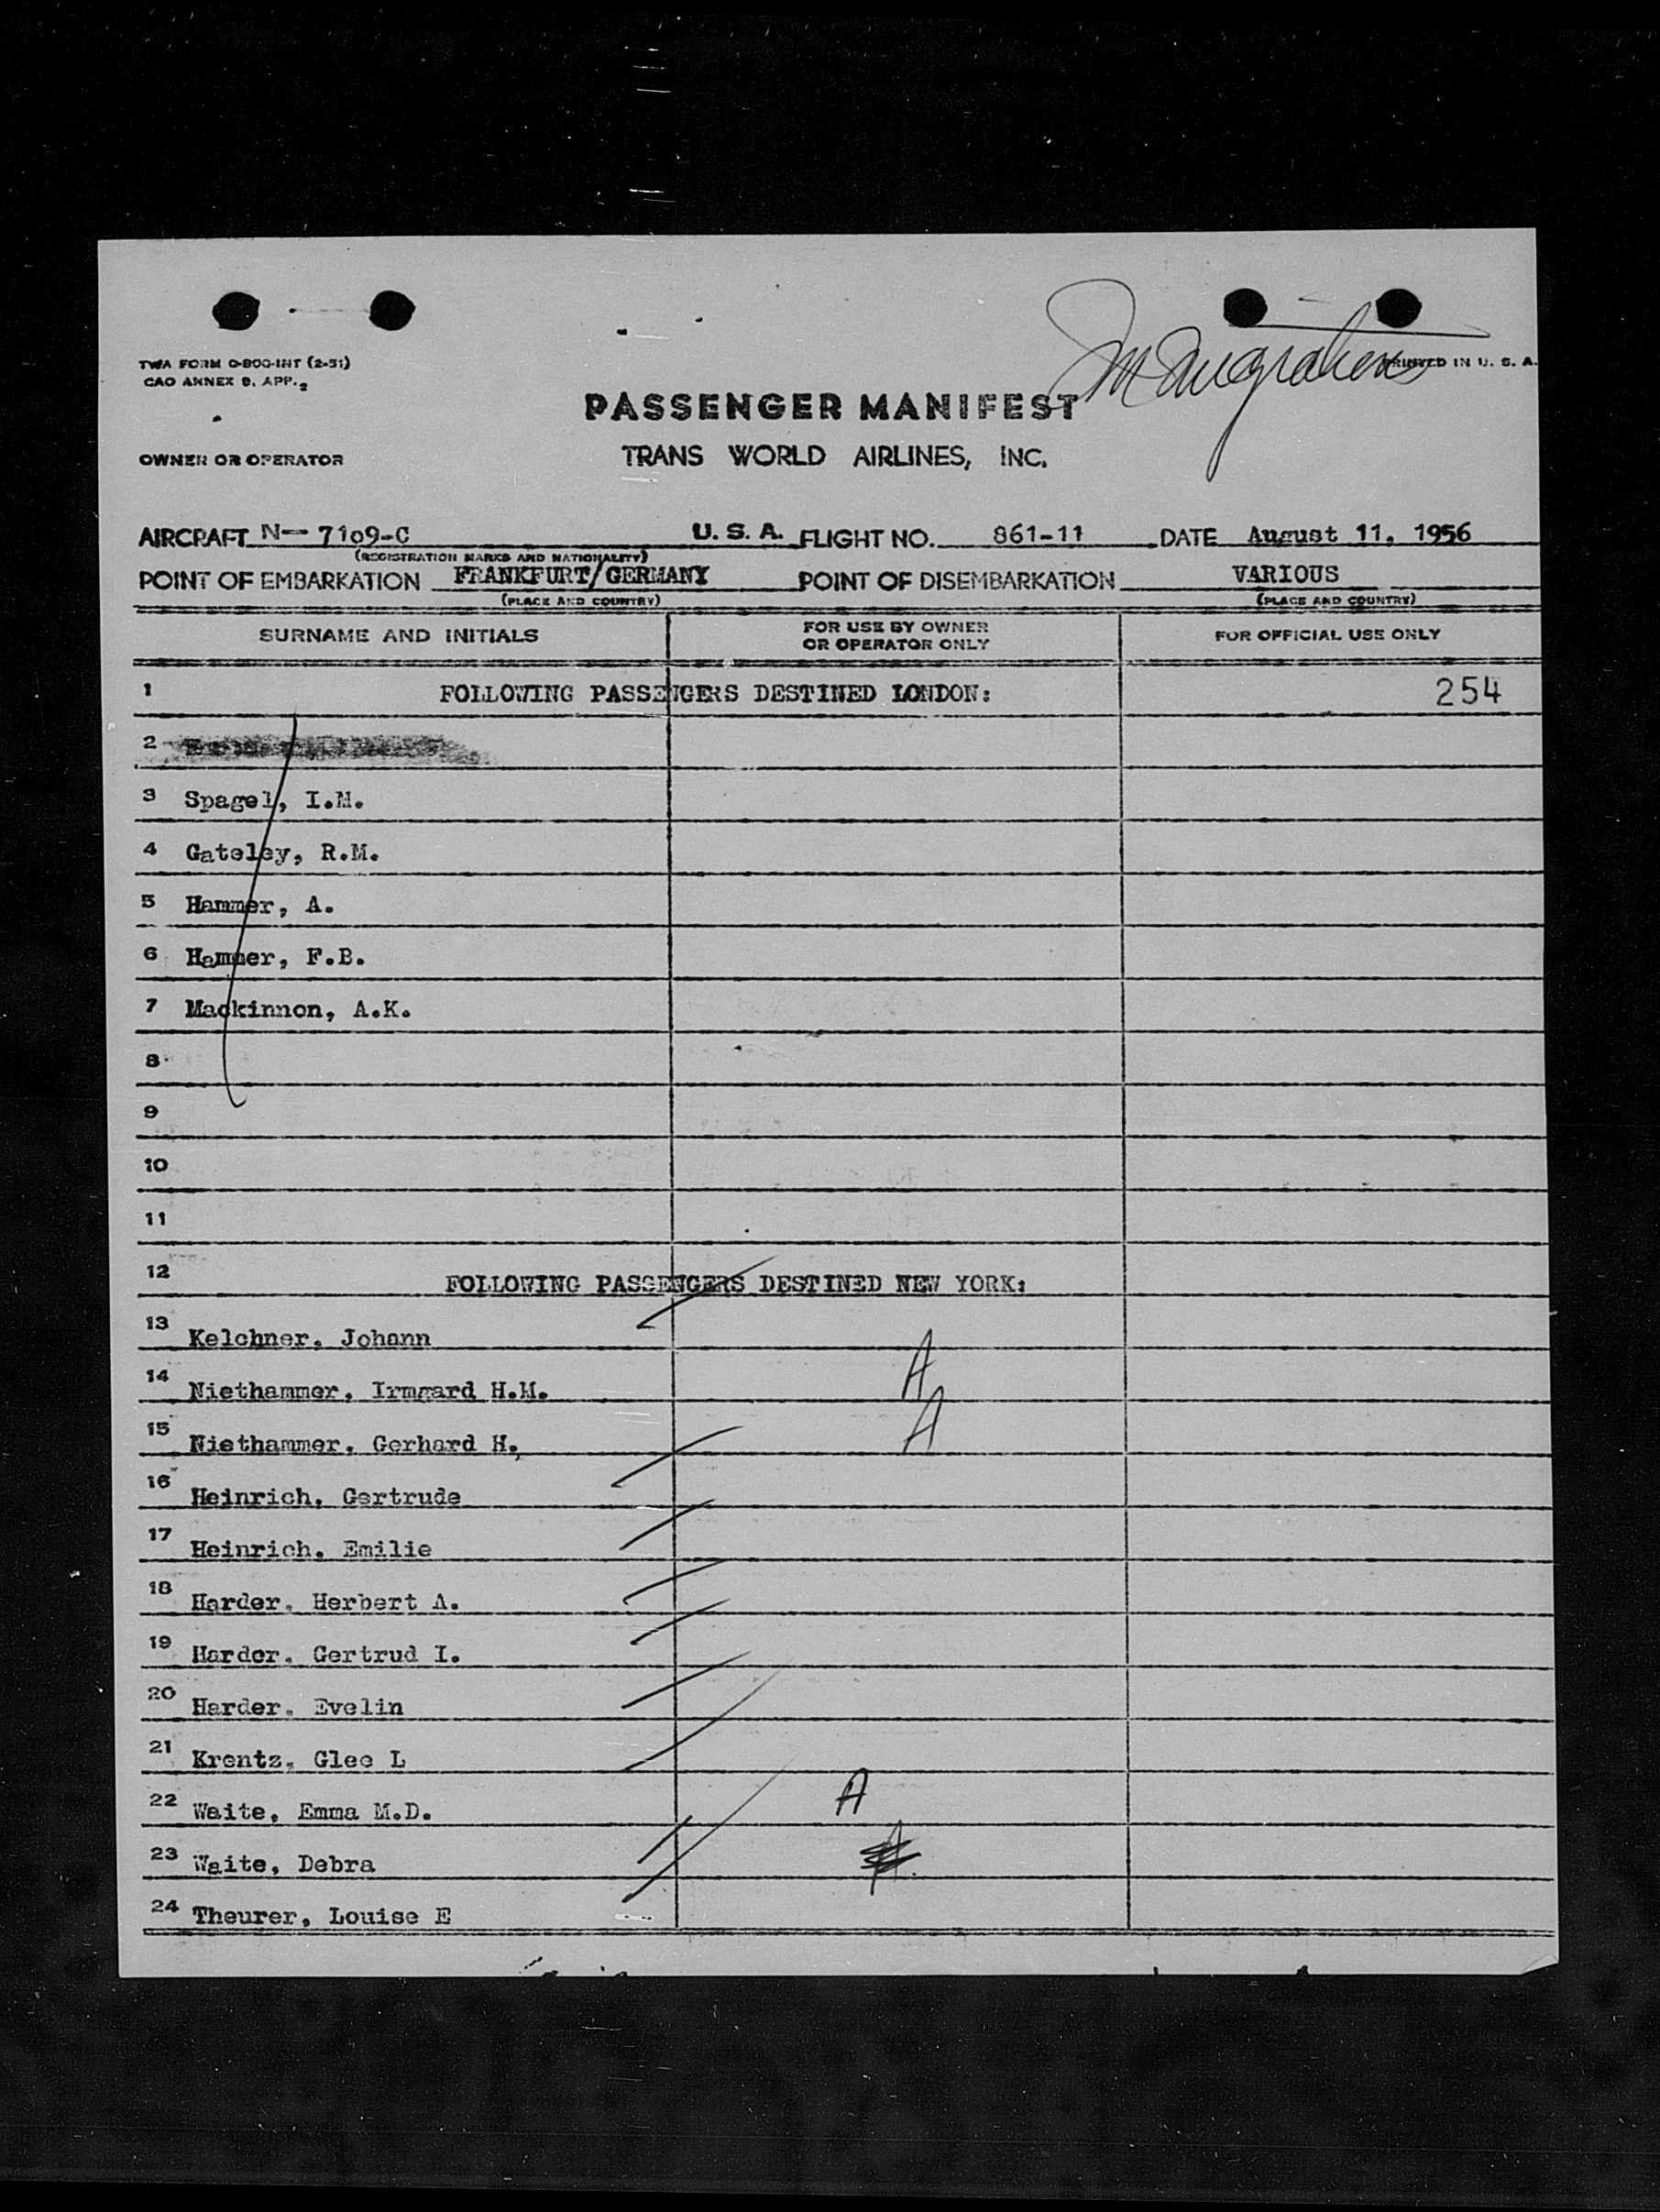 TWA FORM O-800-INT (2-51)
CAO ANNEX 9, APP. 2
PRINTED IN U. S. A.
PASSENGER MANIFEST
OWNER OR OPERATOR TRANS WORLD AIRLINES, INC.
AIRCRAFT N— 7109-C U. S. A. FLIGHT NO. 861-11 DATE August 11, 1956
(REGISTRATION MARKS AND NATIONALITY)
POINT OF EMBARKATION FRANKFURT/GERMANY POINT OF DISEMBARKATION VARIOUS
(PLACE AND COUNTRY) (PLACE AND COUNTRY)
SURNAME AND INITIALS FOR USE BY OWNER OR OPERATOR ONLY FOR OFFICIAL USE ONLY
1 FOLLOWING PASSENGERS DESTINED LONDON: 254
2
3 Spagel, I.M.
4 Gateley, R.M.
5 Hammer, A.
6 Hammer, F.B.
7 Mackinnon, A.K.
8
9
10
11
12 FOLLOWING PASSENGERS DESTINED NEW YORK:
13 Kelchner, Johann
14 Niethammer, Irmgard H.M. A
15 Niethammer, Gerhard H. A
16 Heinrich, Gertrude
17 Heinrich, Emilie
18 Harder, Herbert A.
19 Harder, Gertrud I.
20 Harder, Evelin
21 Krentz, Glee L
22 Waite, Emma M.D. A
23 Waite, Debra
24 Theurer, Louise E